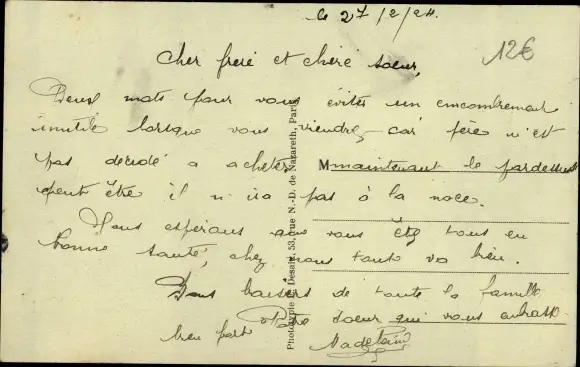 le 27/2/24.
12€
Cher frère et chère soeur,
Deux mots pour vous éviter un encombrement
inutile lorsque vous viendrez car père n'est
pas décidé a acheter maintenant le pardessus
peut être il n ira pas à la noce.
Nous espérons que vous êtes tous en
bonne santé, chez nous tout va bien.
Bons baisers de toute la famille
Votre soeur qui vous embrasse
bien fort
Madeleine
M
Phototypie Desaix, 53, rue N.-D. de Nazareth, Paris